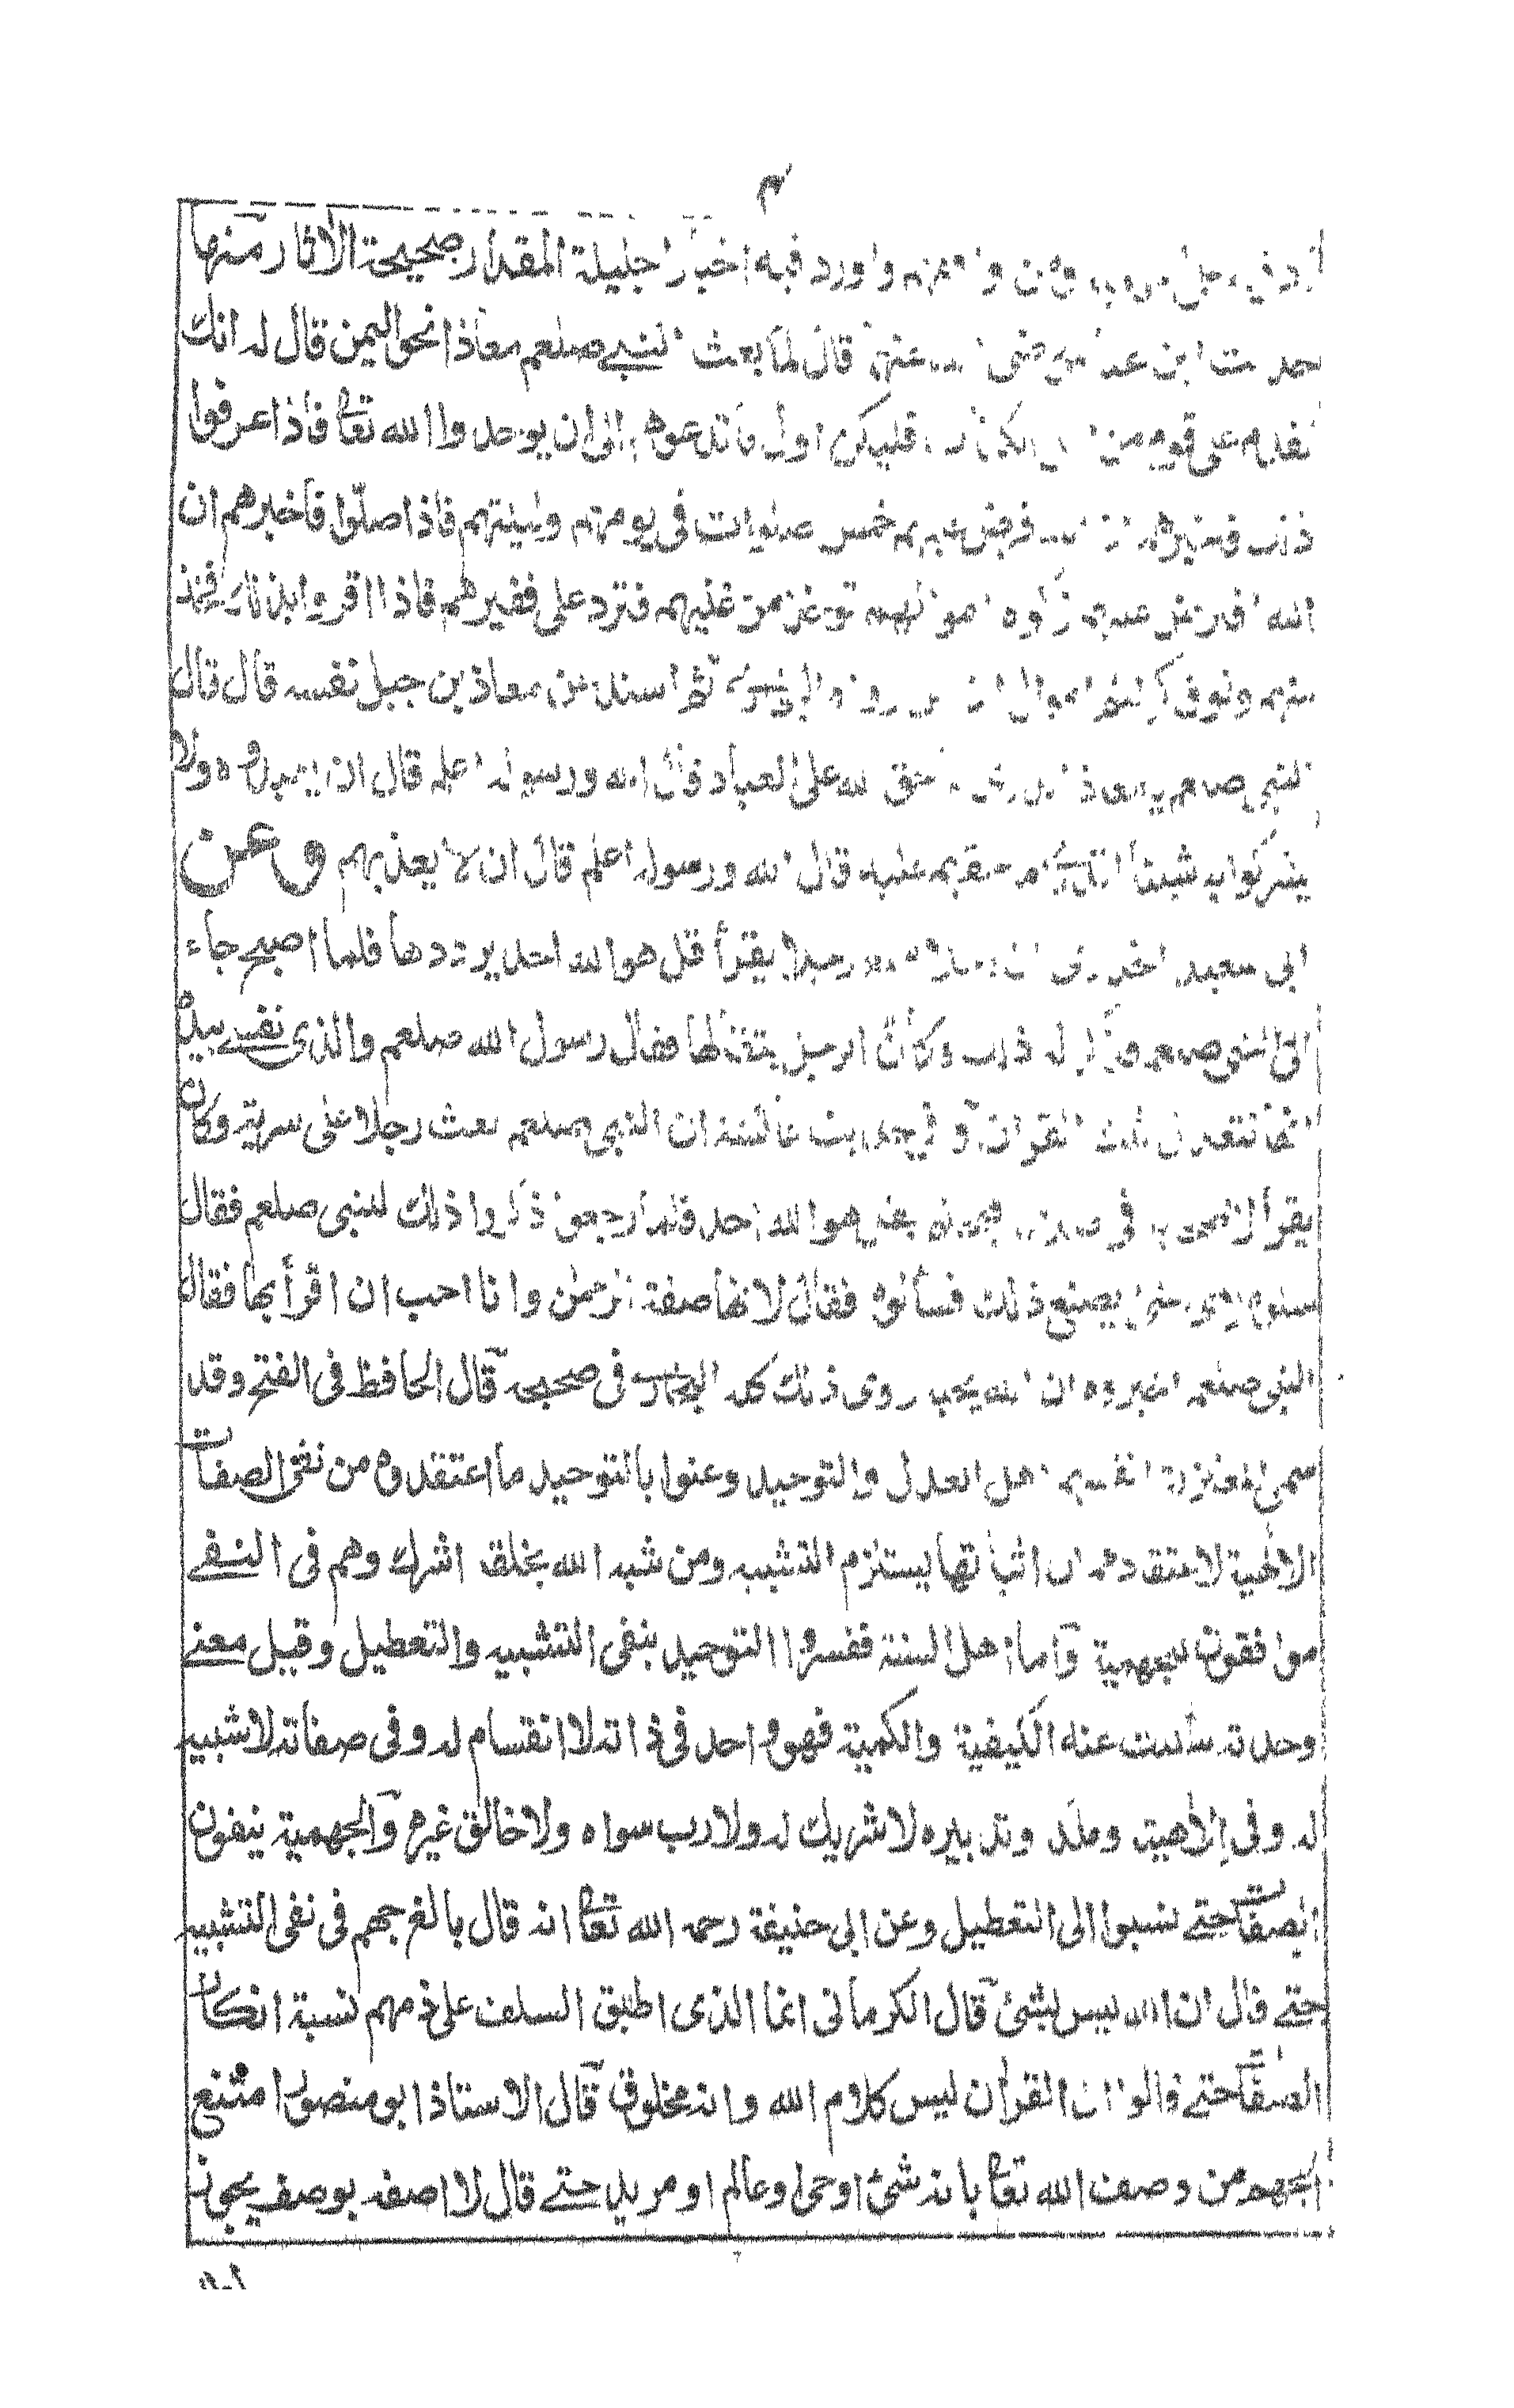 ٣
واورد فيه اخبارا جليلة المقدار صحيحة الآثار منها
ابن عباس رضي الله عنهما قال لما بعث النبي صلعم معاذا نحو اليمن قال له انك
تقدم على قوم من اهل الكتاب فليكن اول ما تدعوهم الى ان يوحدوا الله تعا فاذا عرفوا
ذلك فاخبرهم ان الله فرض عليهم خمس صلوات في يومهم وليلتهم فاذا صلوا فاخبرهم ان
الله افترض عليهم زكوة اموالهم تؤخذ من غنيهم فترد على فقيرهم فاذا اقروا بذلك فخذ
منهم وتوق كرائم اموال الناس رواه البخاري ثم اسند عن معاذ بن جبل نفسه قال قال
النبي صلعم يا معاذ اتدري ما حق الله على العباد قال الله ورسوله اعلم قال ان يعبدوه ولا
يشركوا به شيئا اتدري ما حقهم عليه قال الله ورسوله اعلم قال ان لا يعذبهم وعن
ابي سعيد الخدري ان رجلا سمع رجلا يقرأ قل هو الله احد يرددها فلما اصبح جاء
الى النبي صلعم فذكر له ذلك وكأن الرجل يتقالها فقال رسول الله صلعم والذي نفسي بيده
انها لتعدل ثلث القرآن وفي حديث عائشة ان النبي صلعم بعث رجلا على سرية وكان
يقرأ لاصحابه في صلاته فيختم بقل هو الله احد فلما رجعوا ذكروا ذلك للنبي صلعم فقال
سلوه لاي شئ يصنع ذلك فسألوه فقال لانها صفة الرحمن وانا احب ان اقرأ بها فقال
النبي صلعم اخبروه ان الله يحبه روى ذلك كله البخاري في صحيحه قال الحافظ في الفتح وقد
سمى المعتزلة انفسهم اهل العدل والتوحيد وعنوا بالتوحيد ما اعتقدوه من نفي الصفات
الالهية لاعتقادهم ان اثباتها يستلزم التشبيه ومن شبه الله بخلقه اشرك وهم في النفي
موافقون للجهمية وآما اهل السنة ففسروا التوحيد بنفي التشبيه والتعطيل وقيل معنى
وحدته سلبت عنه الكيفية والكمية فهو واحد في ذاته لا انقسام له وفي صفاته لا شبيه
له وفي إلاهيته وملكه وتدبيره لا شريك له ولا رب سواه ولا خالق غيره وآلجهمية ينفون
الصفات حتے نسبوا الى التعطيل وعن ابي حنيفة رحمه الله تعا انه قال بالغ جهم في نفي التشبيه
حتے قال ان الله ليس بشئ قآل الكرماني انما الذي اطبق السلف على ذمهم نسبة انكار
الصفات حتے قالوا ان القرآن ليس كلام الله وانه مخلوق قآل الاستاذ ابو منصور امتنع
الجهم من وصف الله تعا بانه شئ او حي او عالم او مريد حتے قال لا اصفه بوصف يجوز